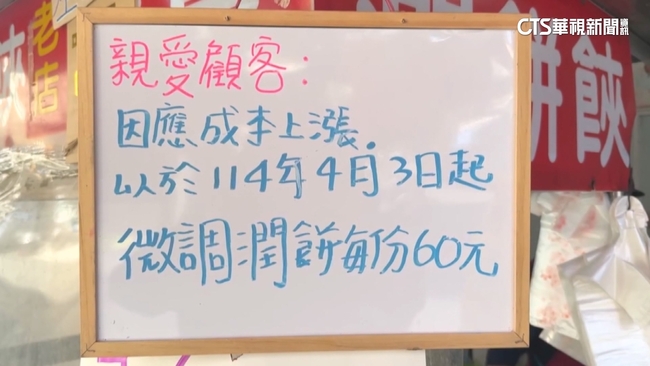 CTS華視新聞 資訊
老店
餅飲
親愛顧客：
因應成本上漲.
以於114年4月3日起
微調潤餅每份60元